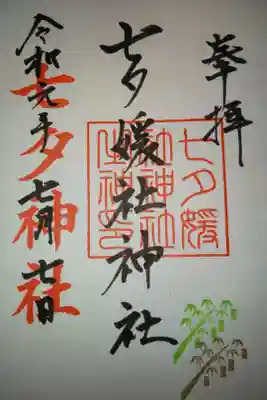 奉拝
七夕媛社神社
七夕媛
社神社
七夕神社
令和元年七月七日